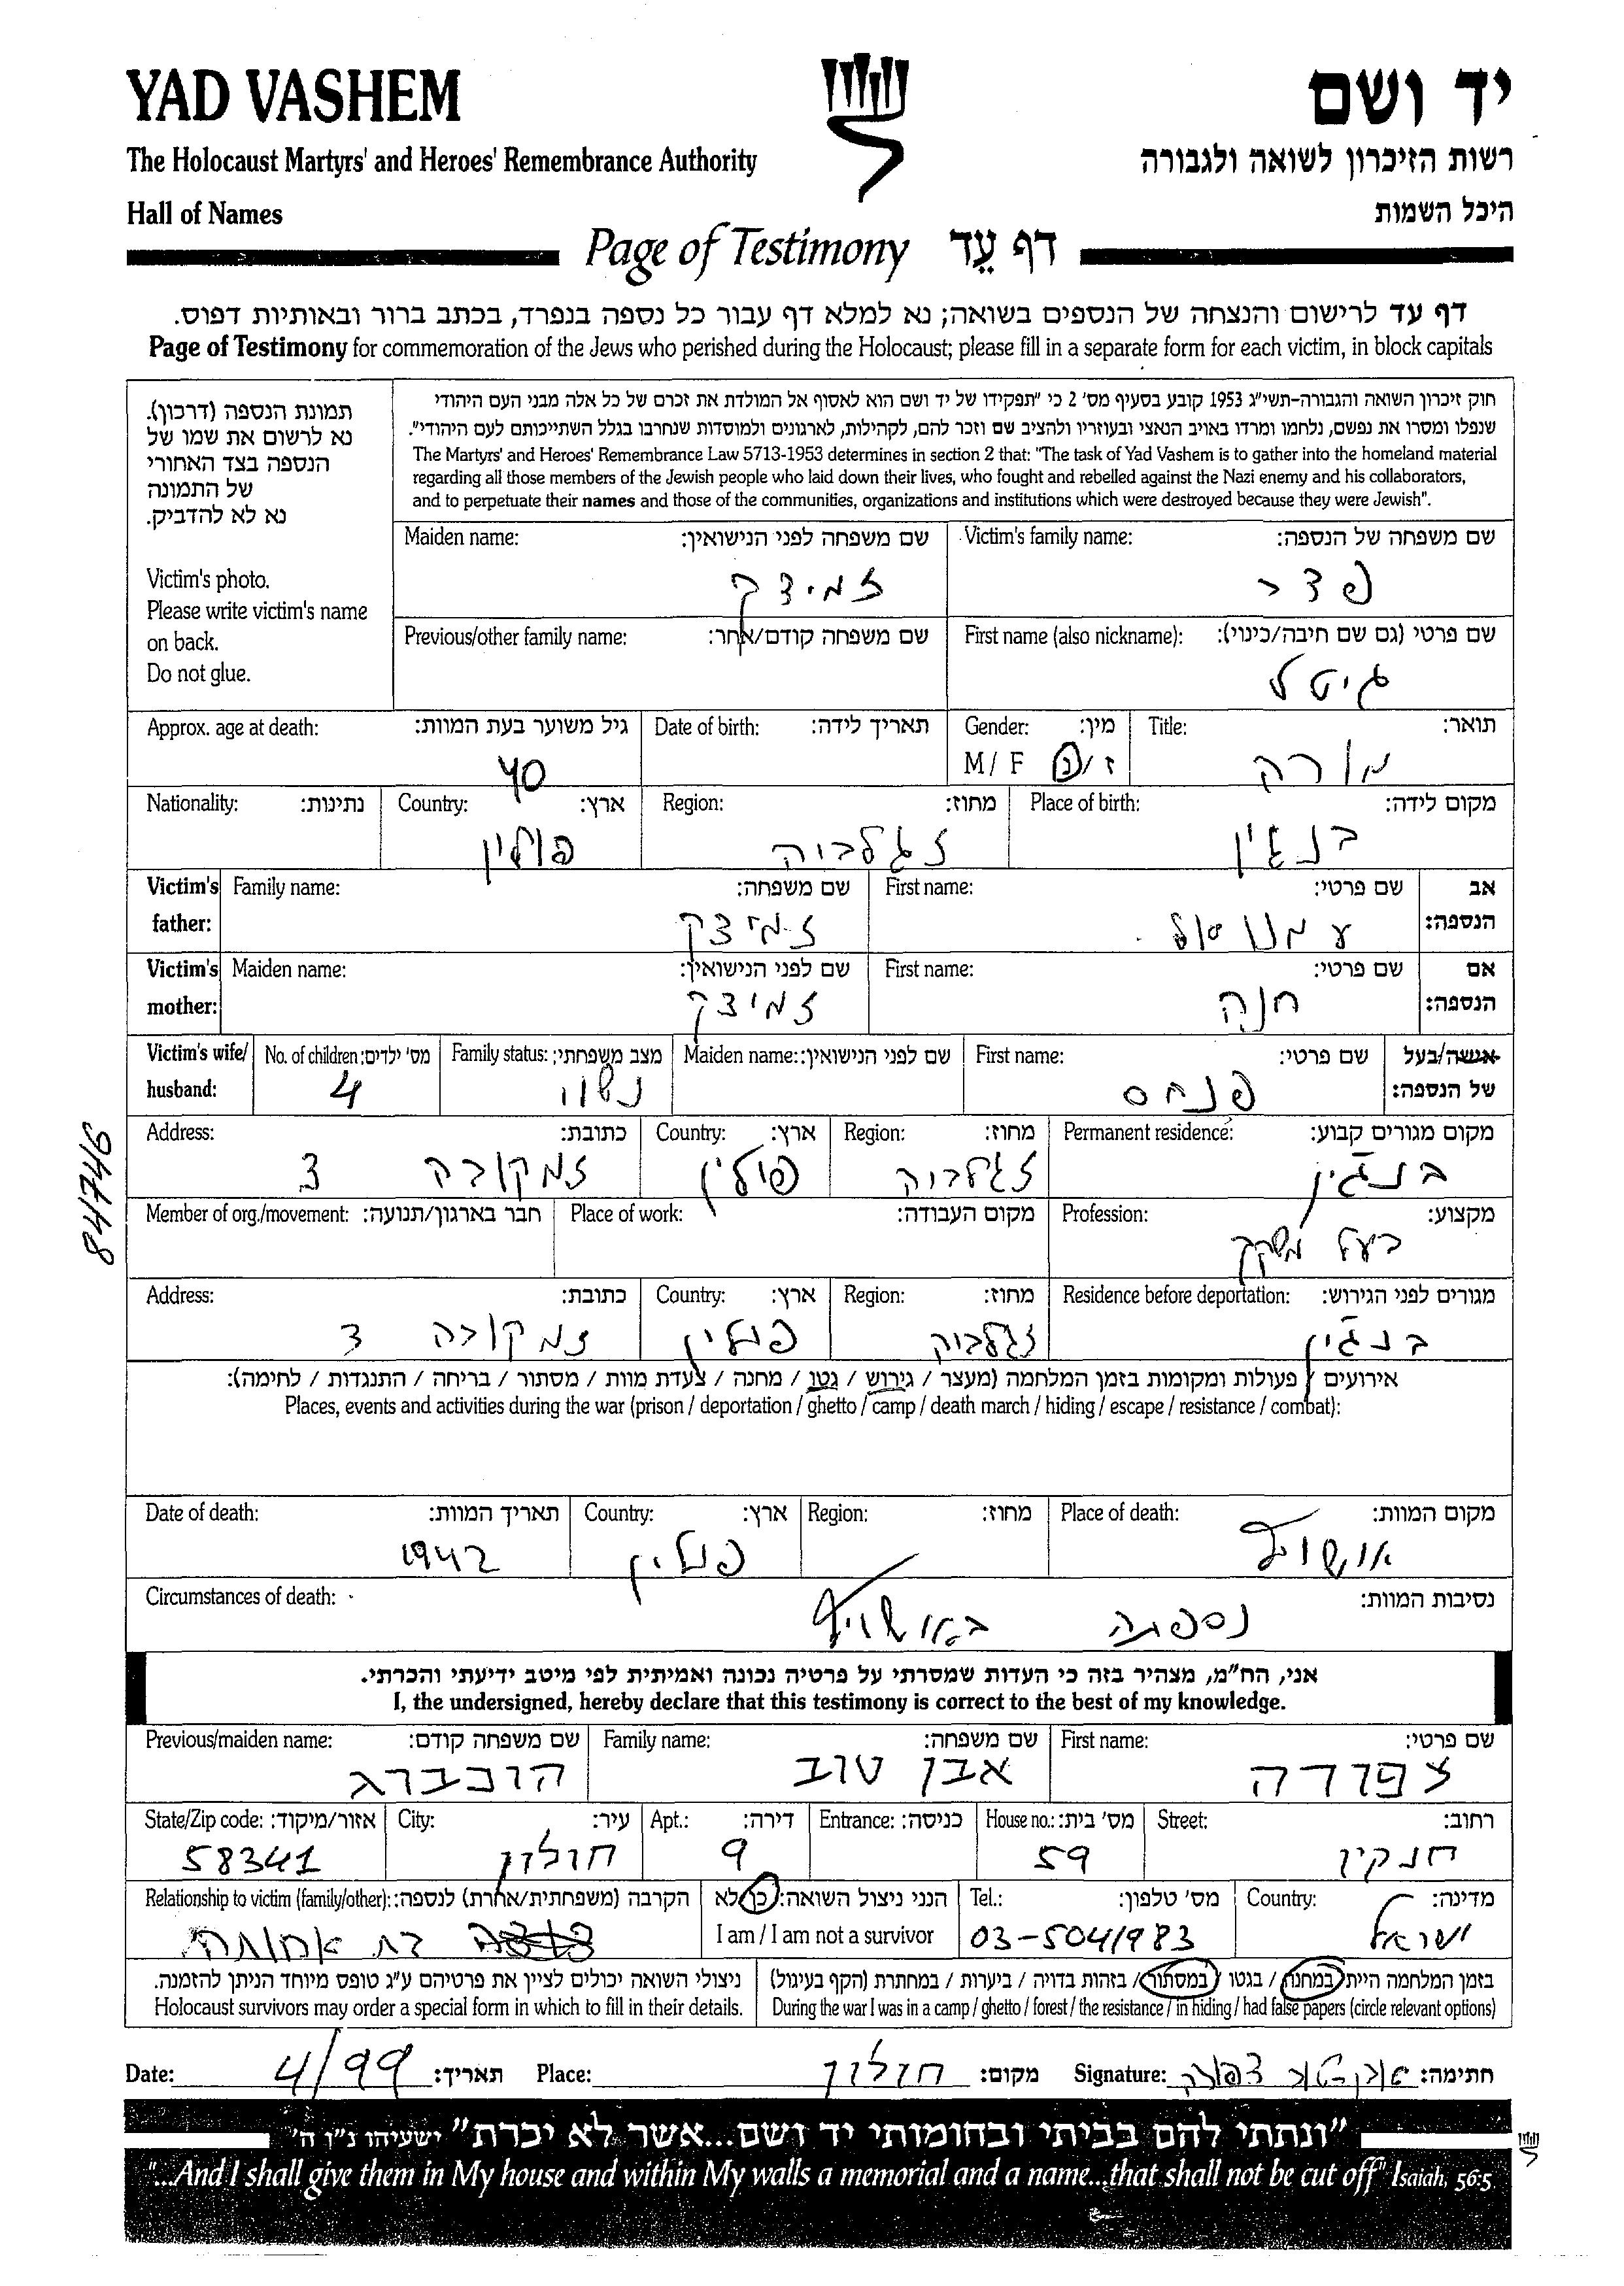 YAD VASHEM
יד ושם
The Holocaust Martyrs' and Heroes' Remembrance Authority
רשות הזיכרון לשואה ולגבורה
Hall of Names
היכל השמות
Page of Testimony דף עֵד
דף עד לרישום והנצחה של הנספים בשואה; נא למלא דף עבור כל נספה בנפרד, בכתב ברור ובאותיות דפוס.
Page of Testimony for commemoration of the Jews who perished during the Holocaust; please fill in a separate form for each victim, in block capitals
תמונת הנספה (דרכון).
נא לרשום את שמו של
הנספה בצד האחורי
של התמונה
נא לא להדביק.
Victim's photo.
Please write victim's name
on back.
Do not glue.
חוק זיכרון השואה והגבורה-תשי"ג 1953 קובע בסעיף מס' 2 כי "תפקידו של יד ושם הוא לאסוף אל המולדת את זכרם של כל אלה מבני העם היהודי
שנפלו ומסרו את נפשם, נלחמו ומרדו באויב הנאצי ובעוזריו ולהציב שם וזכר להם, לקהילות, לארגונים ולמוסדות שנחרבו בגלל השתייכותם לעם היהודי".
The Martyrs' and Heroes' Remembrance Law 5713-1953 determines in section 2 that: "The task of Yad Vashem is to gather into the homeland material
regarding all those members of the Jewish people who laid down their lives, who fought and rebelled against the Nazi enemy and his collaborators,
and to perpetuate their names and those of the communities, organizations and institutions which were destroyed because they were Jewish".
Victim's family name: שם משפחה של הנספה:
פדר
Maiden name: שם משפחה לפני הנישואין:
זמידק
First name (also nickname): שם פרטי (גם שם חיבה/כינוי):
גיטל
Previous/other family name: שם משפחה קודם/אחר:
Title: תואר:
מורה
Gender: מין:
M / F ז / נ
Date of birth: תאריך לידה:
Approx. age at death: גיל משוער בעת המוות:
40
Place of birth: מקום לידה:
בנגין
Region: מחוז:
זגלביה
Country: ארץ:
פולין
Nationality: נתינות:
אב הנספה:
First name: שם פרטי:
עמנואל
Family name: שם משפחה:
זמיצק
Victim's father:
אם הנספה:
First name: שם פרטי:
חנה
Maiden name: שם לפני הנישואין:
זמיצק
Victim's mother:
אישה/בעל של הנספה:
First name: שם פרטי:
פנחס
Maiden name: שם לפני הנישואין:
Family status: מצב משפחתי:
נשוי
No. of children: מס' ילדים:
4
Victim's wife/ husband:
Permanent residence: מקום מגורים קבוע:
בנגין
Region: מחוז:
זגלביה
Country: ארץ:
פולין
Address: כתובת:
זמקובה 3
Profession: מקצוע:
בעל משק
Place of work: מקום העבודה:
Member of org./movement: חבר בארגון/תנועה:
Residence before deportation: מגורים לפני הגירוש:
בנגין
Region: מחוז:
זגלביה
Country: ארץ:
פולין
Address: כתובת:
זמקובה 3
אירועים / פעולות ומקומות בזמן המלחמה (מעצר / גירוש / גטו / מחנה / צעדת מוות / מסתור / בריחה / התנגדות / לחימה):
Places, events and activities during the war (prison / deportation / ghetto / camp / death march / hiding / escape / resistance / combat):
Place of death: מקום המוות:
אושויץ
Region: מחוז:
Country: ארץ:
פולין
Date of death: תאריך המוות:
1942
Circumstances of death: נסיבות המוות:
נספתה באושויץ
אני, הח"מ, מצהיר בזה כי העדות שמסרתי על פרטיה נכונה ואמיתית לפי מיטב ידיעתי והכרתי.
I, the undersigned, hereby declare that this testimony is correct to the best of my knowledge.
First name: שם פרטי:
צפורה
Family name: שם משפחה:
אבן טוב
Previous/maiden name: שם משפחה קודם:
הוכברג
Street: רחוב:
חנקין
House no.: מס' בית:
59
Entrance: כניסה:
Apt.: דירה:
9
City: עיר:
חולון
State/Zip code: אזור/מיקוד:
58341
Country: מדינה:
ישראל
Tel.: מס' טלפון:
03-5041983
הנני ניצול השואה: כן/לא
I am / I am not a survivor
Relationship to victim (family/other): הקרבה (משפחתית/אחרת) לנספה:
בת אחותה
בזמן המלחמה הייתי במחנה / בגטו / במסתור / בזהות בדויה / ביערות / במחתרת (הקף בעיגול)
During the war I was in a camp / ghetto / forest / the resistance / in hiding / had false papers (circle relevant options)
ניצולי השואה יכולים לציין את פרטיהם ע"ג טופס מיוחד הניתן להזמנה.
Holocaust survivors may order a special form in which to fill in their details.
Signature: חתימה: אבן טוב צפורה
Place: מקום: חולון
Date: תאריך: 4/99
"ונתתי להם בביתי ובחומותי יד ושם...אשר לא יכרת" ישעיהו נ"ו ה'
"...And I shall give them in My house and within My walls a memorial and a name...that shall not be cut off" Isaiah, 56:5